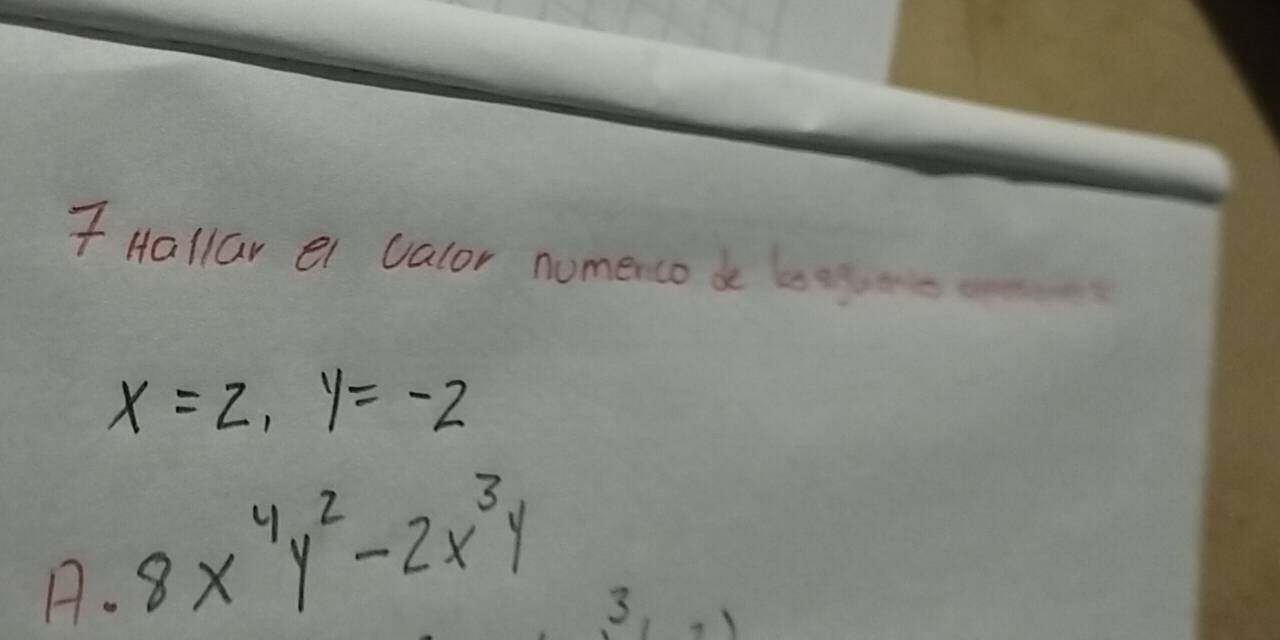 7 Hallar el valor numerico de
x = 2, y = -2
A. 8x⁴y² - 2x³y